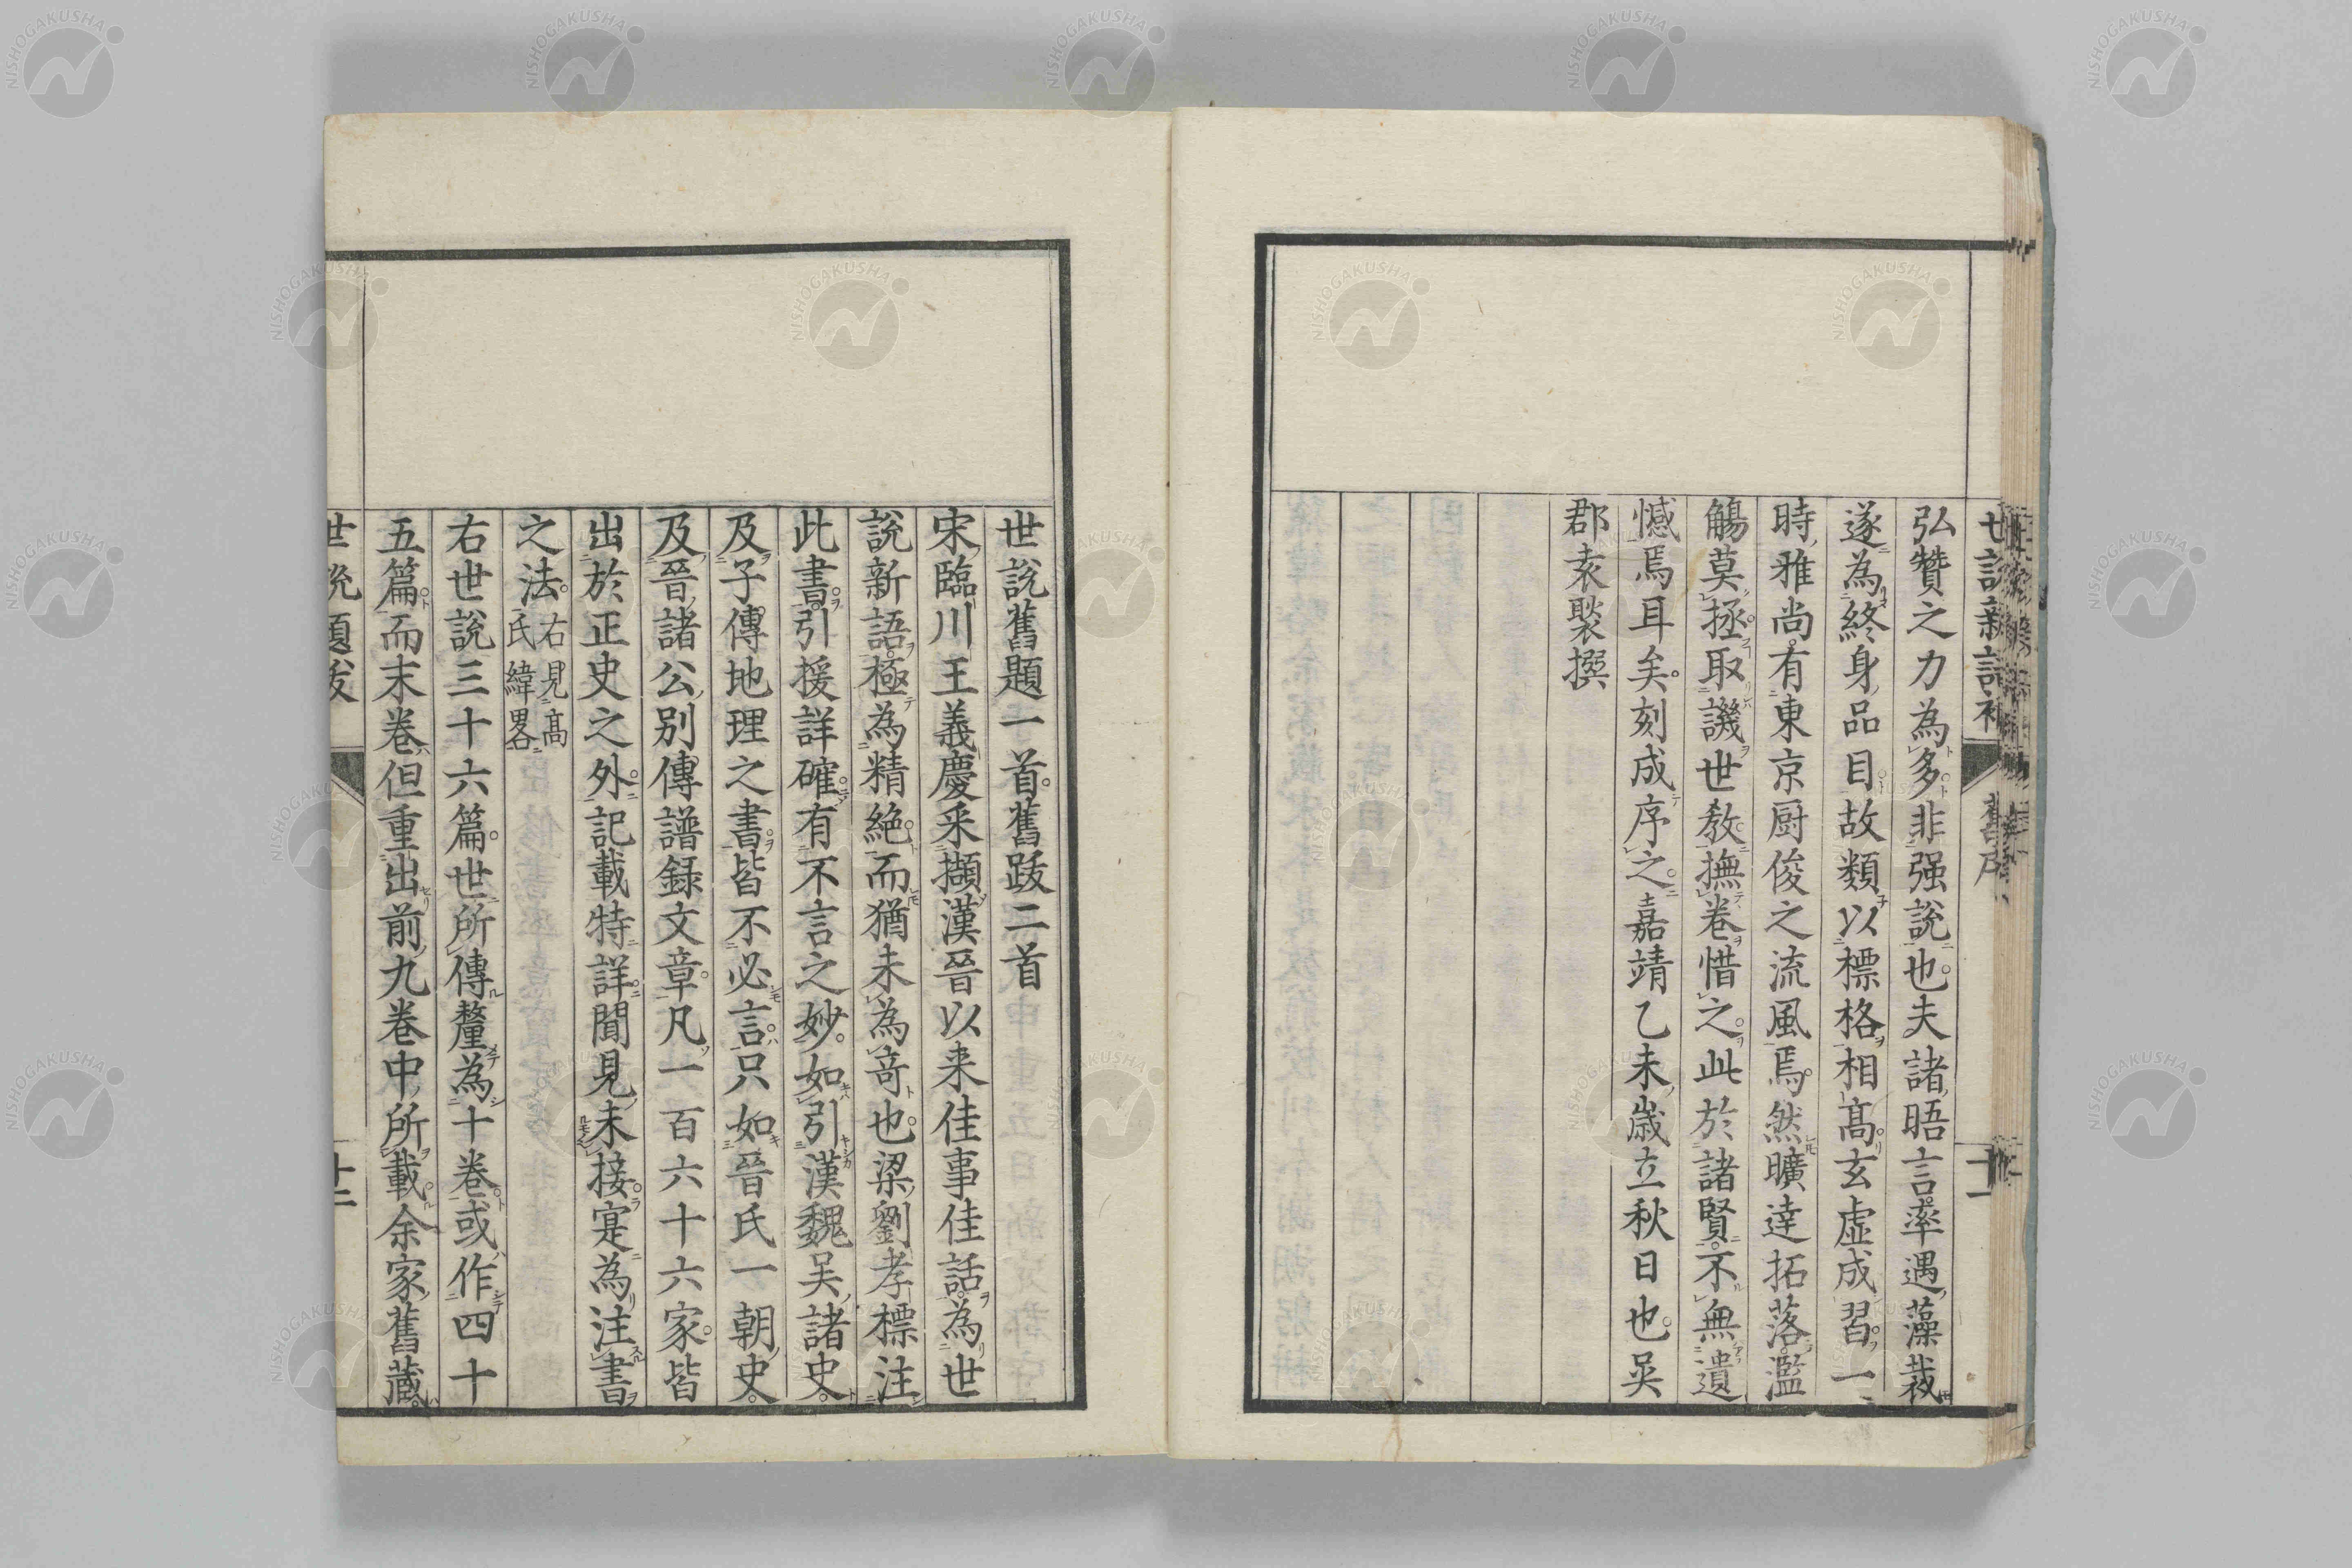 弘贊之力為多非强說也夫諸晤言率遇藻裁
遂為終身品目故類以標格相髙玄虛成習一
時雅尚有東京厨俊之流風焉然曠達拓落濫
觴莫拯取譏世教撫卷惜之此於諸賢不無遺
憾焉耳矣刻成序之嘉靖乙未歲立秋日也吳
郡袁褧撰
世說舊題一首舊跋二首
宋臨川王義慶采擷漢晉以来佳事佳話為世
說新語極為精絶而猶未為竒也梁劉孝標注
此書引援詳確有不言之妙如引漢魏吴諸史
及子傳地理之書皆不必言只如晉氏一朝史
及晉諸公別傳譜録文章凡一百六十六家皆
出於正史之外記載特詳聞見未接寔為注書
之法右見髙氏緯畧
右世說三十六篇世所傳釐為十卷或作四十
五篇而末卷但重出前九卷中所載余家舊藏
十二
NISHOGAKUSHA